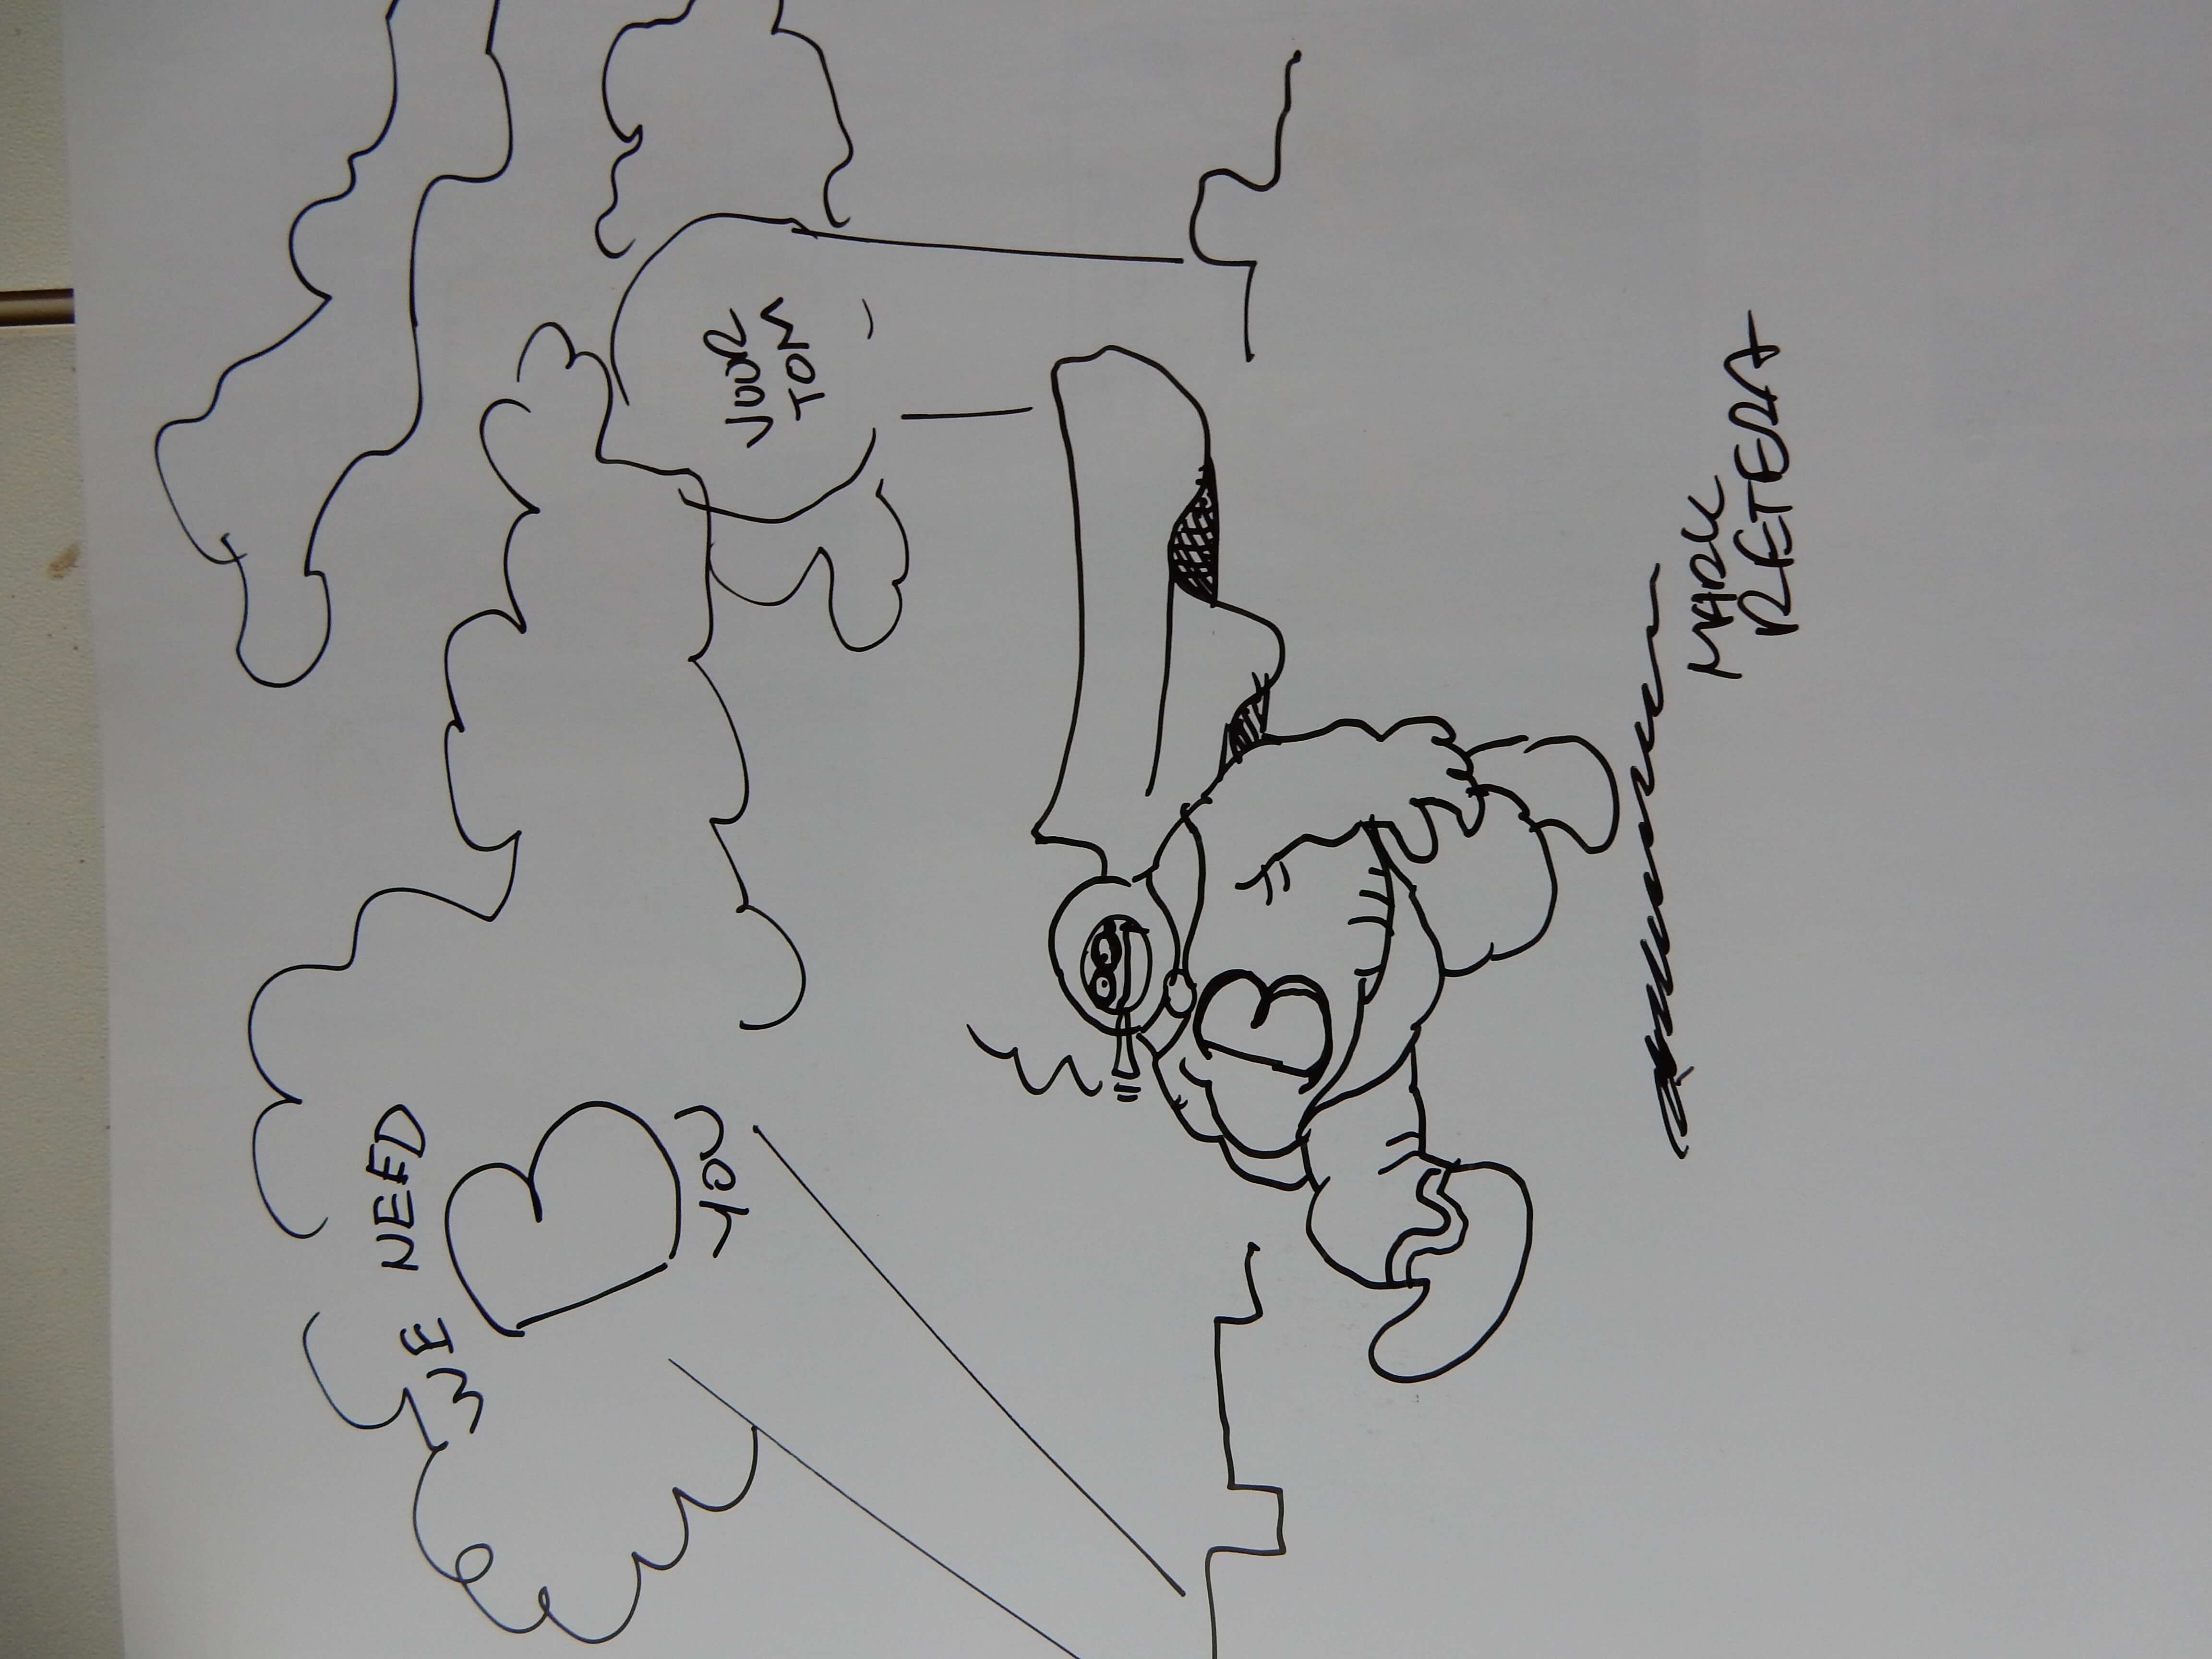 WE NEED
B
YOU
VOOR
TOM
B
MARK
RETERA